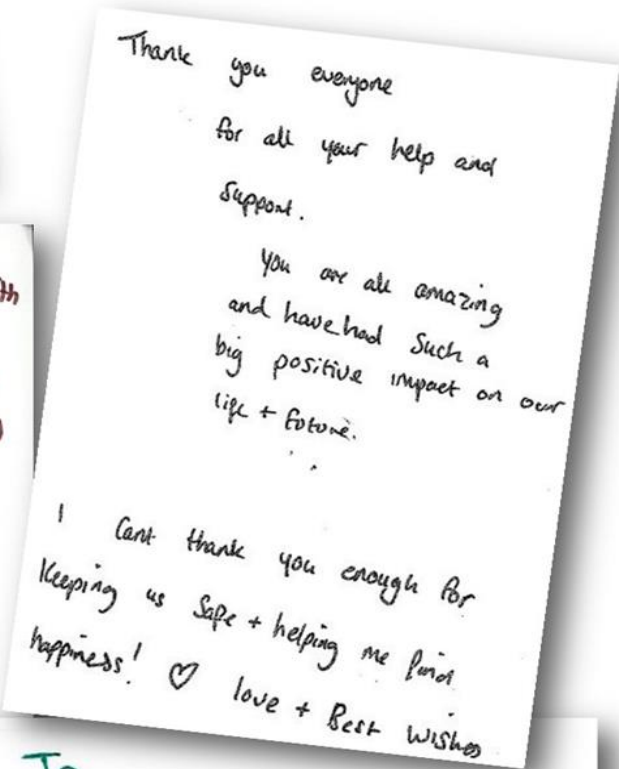 Thank you everyone
for all your help and
Support.
You are all amazing
and have had Such a
big positive impact on our
life + future.
I Cant thank you enough for
Keeping us Safe + helping me find
happiness! ♡ love + Best Wishes
th
To